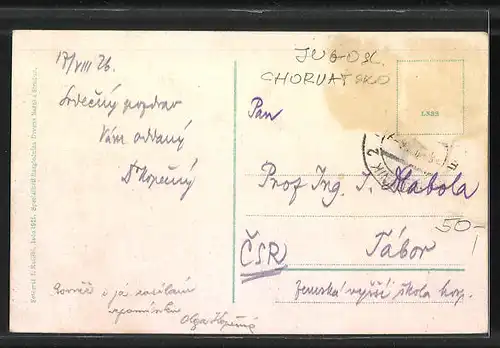 17/VIII 26.
Srdečný pozdrav
Vám oddaný
Dr Kopečný
Rovněž i já zasílám
vzpomínku
Olga Kopečná
JUGOSL.
CHORVATSKO
1.833
Pan
Prof Ing. J. Habola
ČSR
Tábor
50-
Zemská vyšší škola hosp.